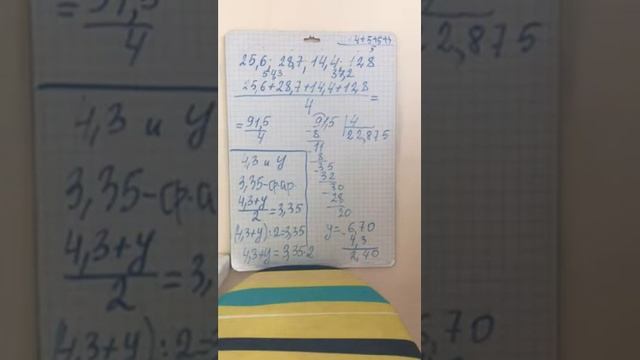 4+5+5+4
25,6; 28,7; 14,4; 12,8
54,3
25,6+28,7+14,4+12,8
4
=
= 91,5
4
91,5 | 4
8
22,875
11
8
35
32
30
28
20
4,3 и y
3,35-ср.ар.
4,3+y
2
=3,35
(4,3+y):2=3,35
4,3+y=3,35·2
y= 6,70
4,3
2,40